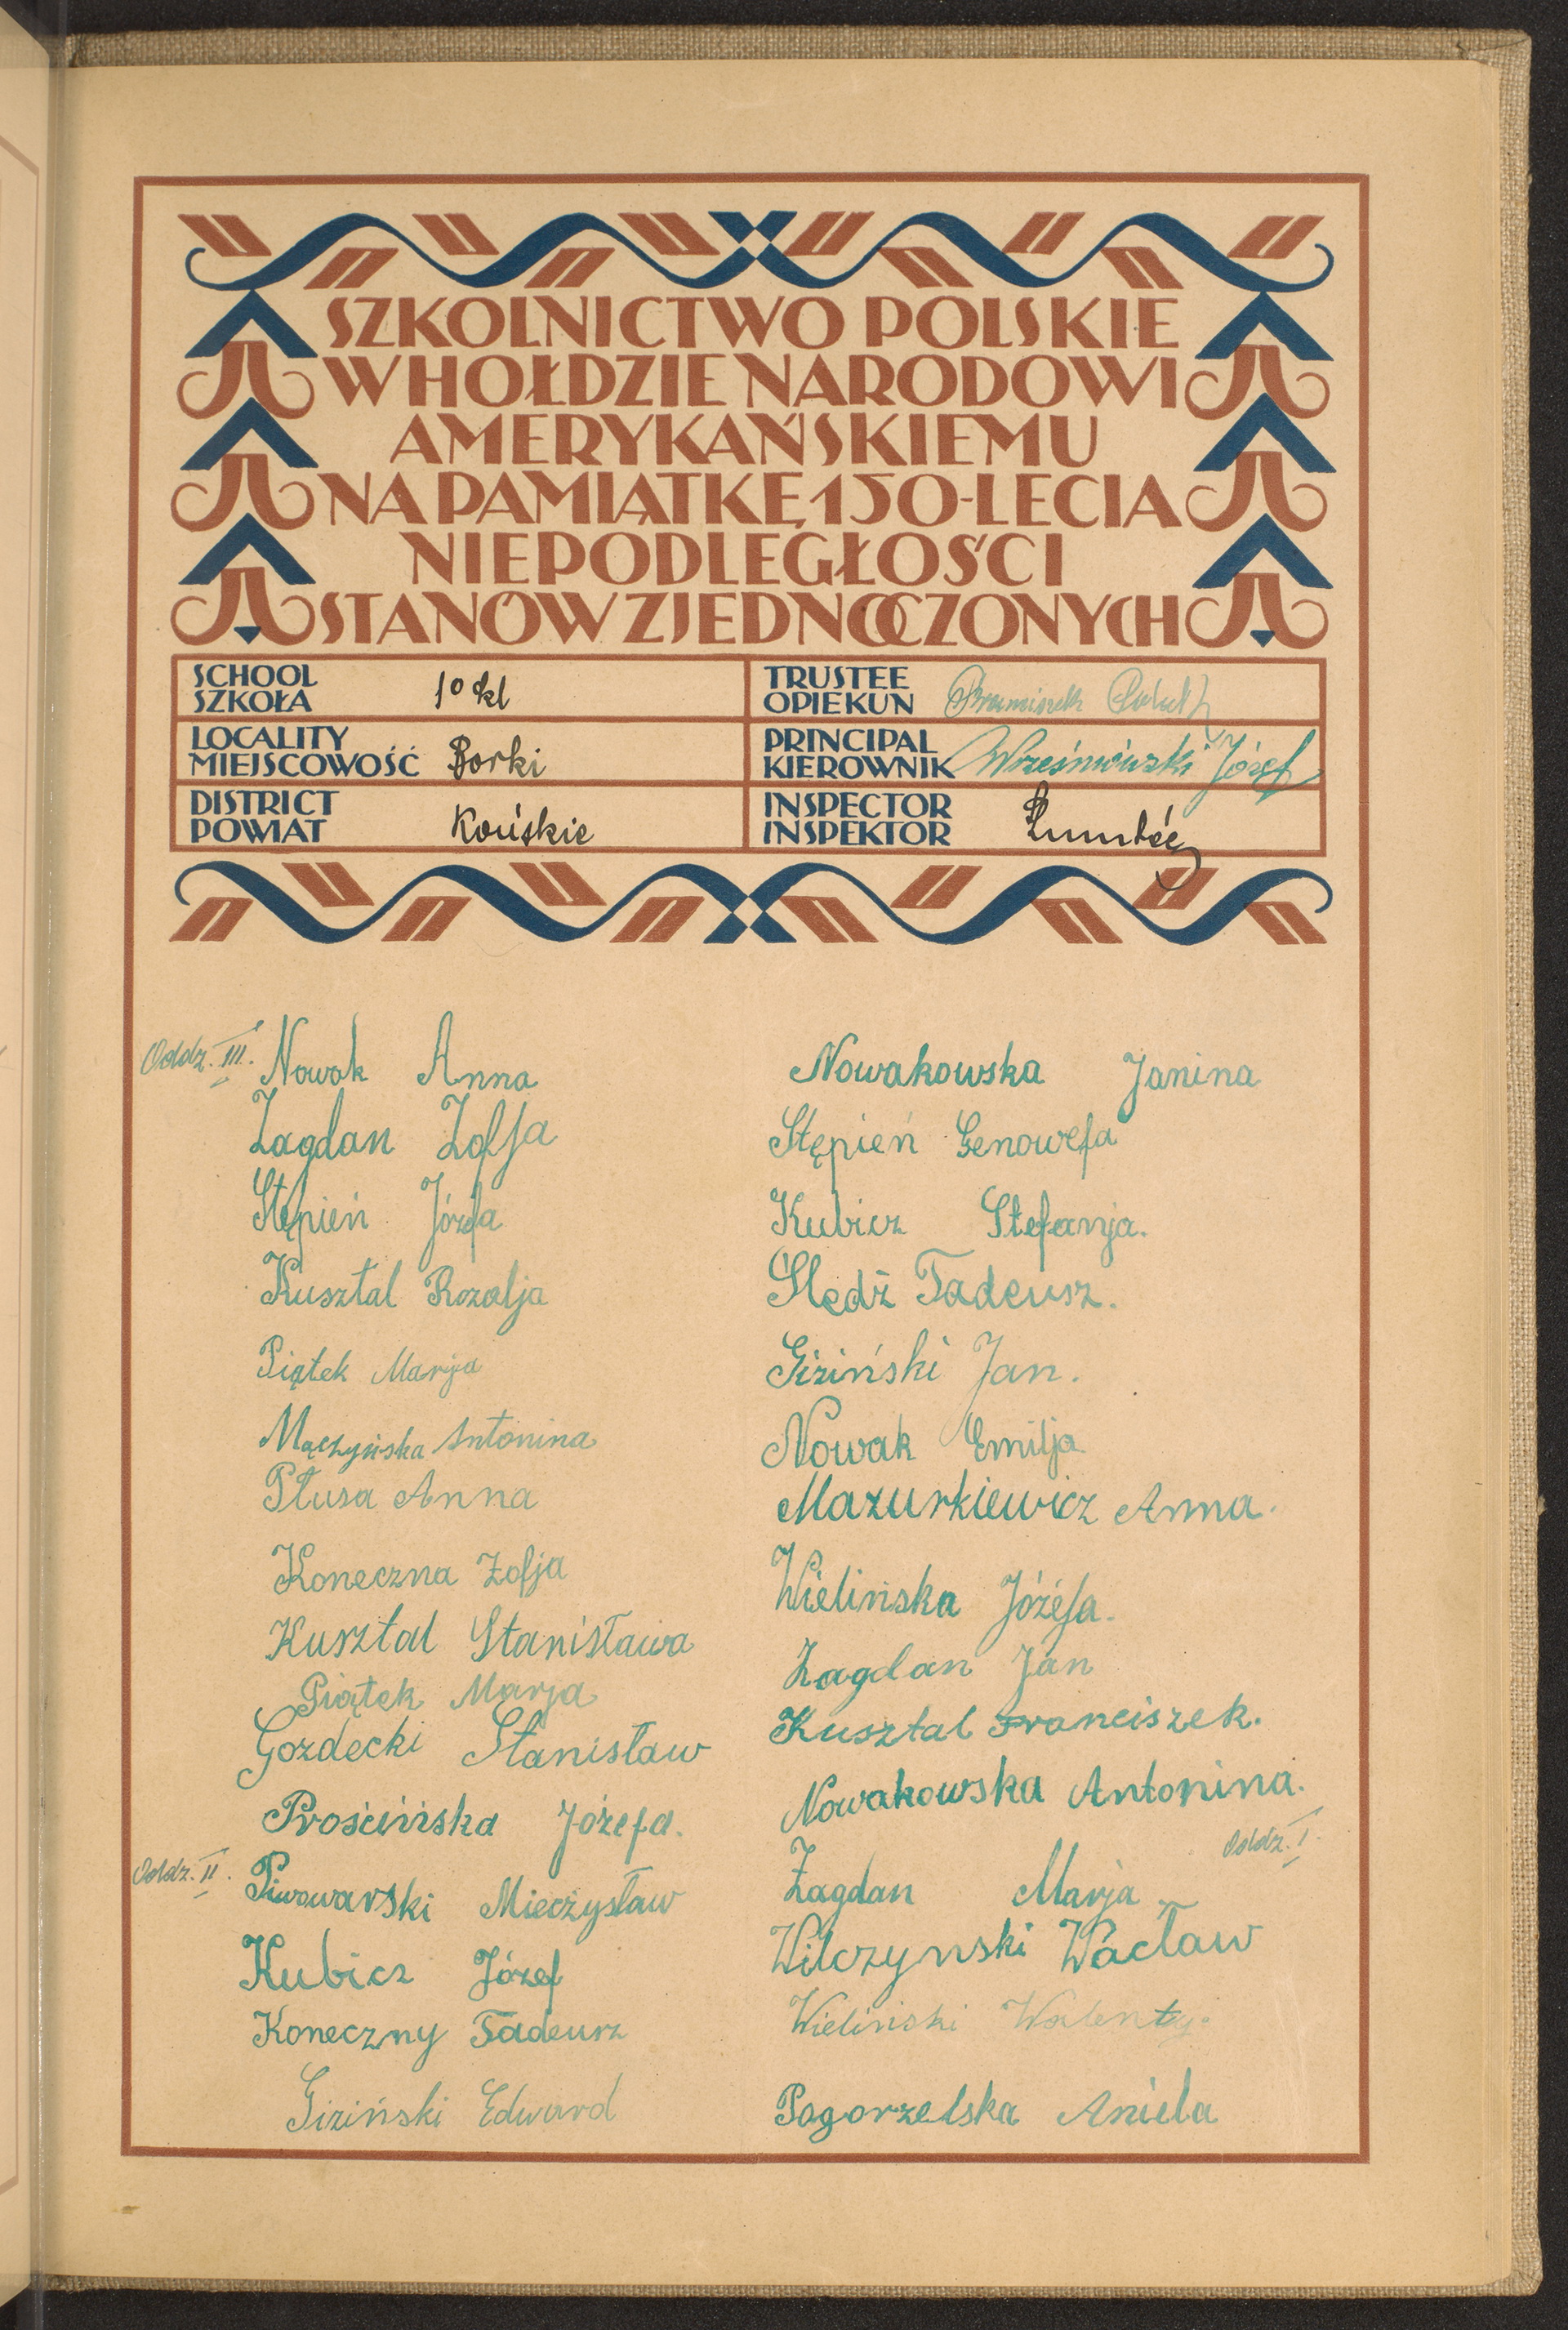 SZKOLNICTWO POLSKIE
W HOŁDZIE NARODOWI
AMERYKAŃSKIEMU
NA PAMIĄTKĘ 150-LECIA
NIEPODLEGŁOŚCI
STANÓW ZJEDNOCZONYCH
SCHOOL
SZKOŁA 1º kl
LOCALITY
MIEJSCOWOŚĆ Borki
DISTRICT
POWIAT Końskie
TRUSTEE
OPIEKUN
PRINCIPAL
KIEROWNIK Wrześniewski Józef
INSPECTOR
INSPEKTOR
Oddz. III. Nowak Anna
Zagdan Zofja
Stępień Józefa
Kusztal Rozalja
Piątek Marja
Mączyńska Antonina
Płusa Anna
Koneczna Zofja
Kusztal Stanisława
Piątek Marja
Gozdecki Stanisław
Prościńska Józefa.
Oddz. II. Piwowarski Mieczysław
Kubicz Józef
Koneczny Tadeusz
Giziński Edward
Nowakowska Janina
Stępień Genowefa
Kubicz Stefanja.
Śledź Tadeusz.
Giziński Jan.
Nowak Emilja
Mazurkiewicz Anna.
Wielińska Józefa.
Zagdan Jan
Kusztal Franciszek.
Nowakowska Antonina.
Oddz. I.
Zagdan Marja
Wilczynski Wacław
Wieliński Walenty.
Pogorzelska Aniela